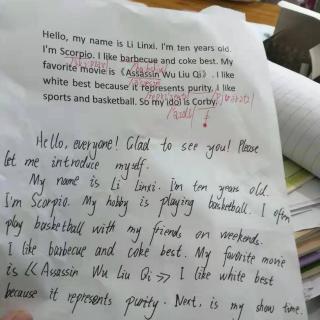 Hello, my name is Li Linxi. I'm ten years old.
I'm Scorpio. I like barbecue and coke best. My
favorite movie is《Assassin Wu Liu Qi》. I like
white best because it represents purity. I like
sports and basketball. So my idol is Corby.
Hello, everyone! Glad to see you! Please
let me introduce myself.
My name is Li Linxi. I'm ten years old.
I'm Scorpio. My hobby is playing basketball. I often
play basketball with my friends on weekends.
I like barbecue and coke best. My favorite movie
is 《Assassin Wu Liu Qi》 I like white best
because it represents purity. Next, is my show time.